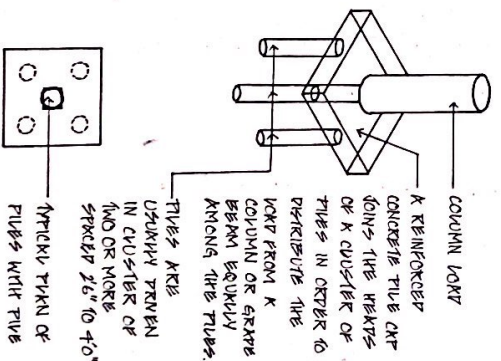 COLUMN LOAD
A REINFORCED
CONCRETE PILE CAP
JOINS THE HEADS
OF A CLUSTER OF
PILES IN ORDER TO
DISTRIBUTE THE
LOAD FROM A
COLUMN OR GRADE
BEAM EQUALLY
AMONG THE PILES.
PILES ARE
USUALLY DRIVEN
IN CLUSTER OF
TWO OR MORE
SPACED 2'6" TO 4'0"
TYPICAL PLAN OF
PILES WITH PILE